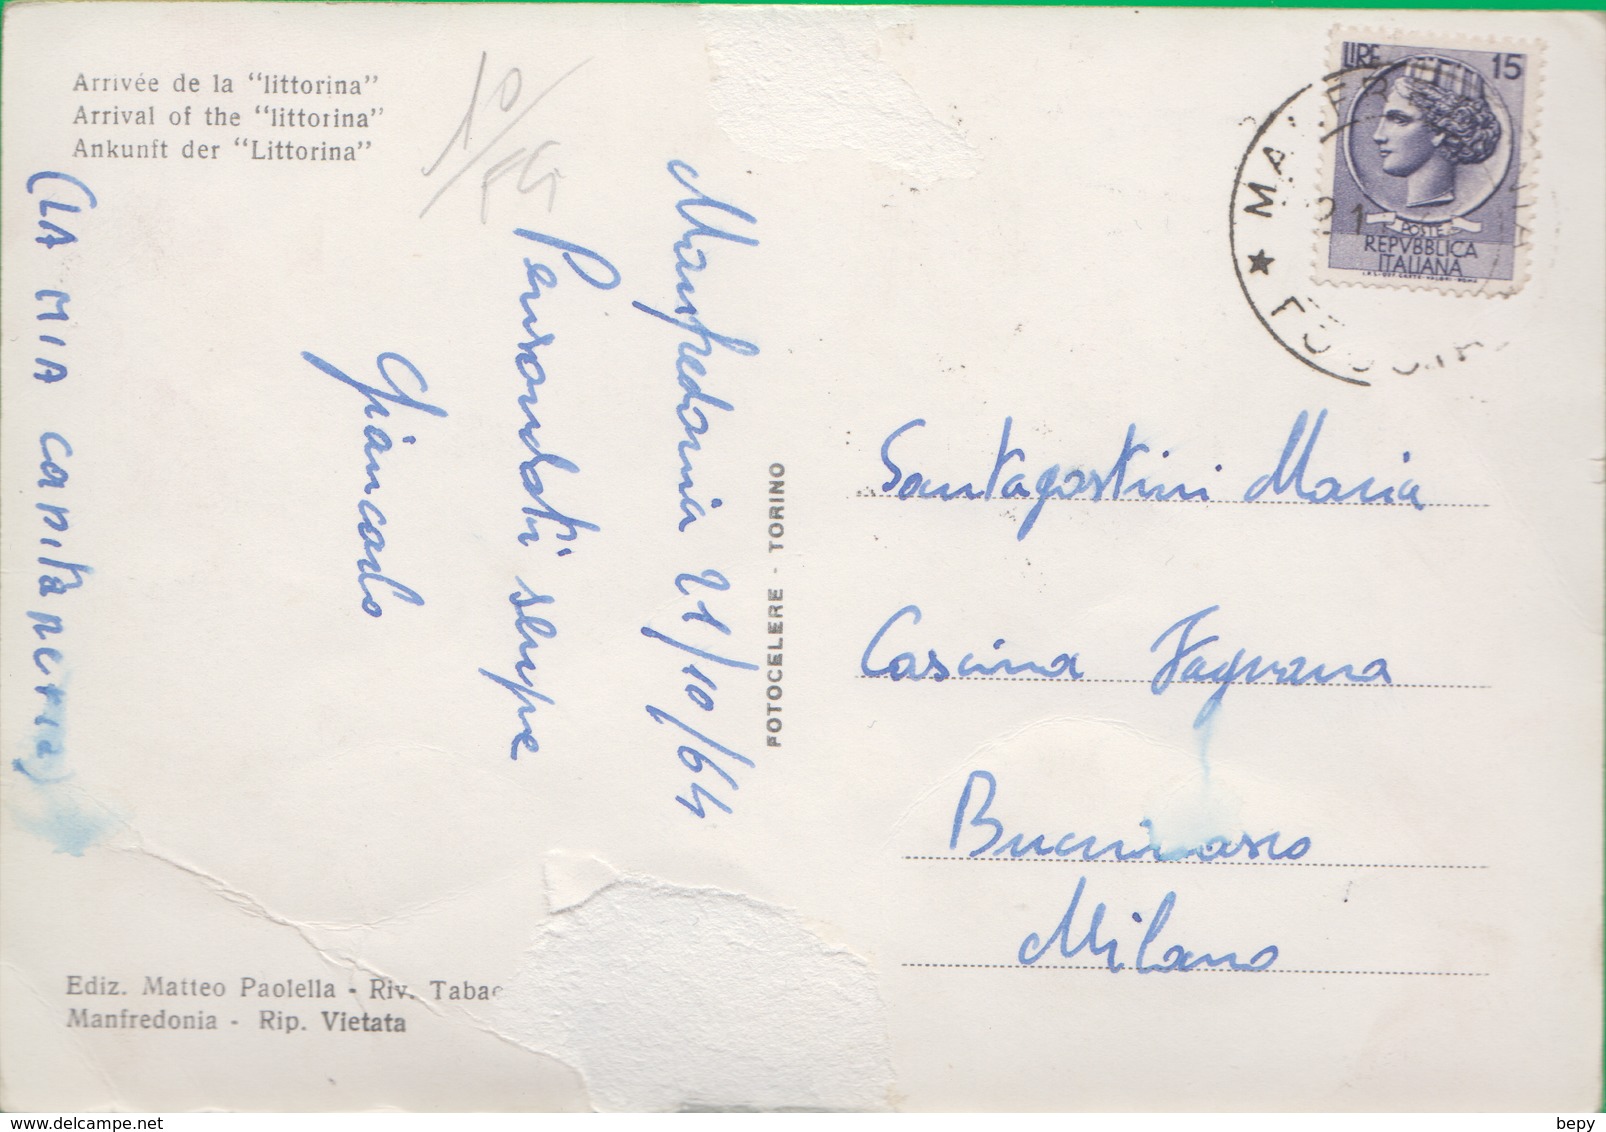 Arrivée de la “littorina”
Arrival of the “littorina”
Ankunft der “Littorina”
(LA MIA CAPITANERIA)
Manfredonia 21/10/64
Pensandoti sempre
Giancarlo
FOTOCELERE - TORINO
LIRE 15
POSTE
REPVBBLICA
ITALIANA
21
Santagostini Maria
Cascina Fagnana
Buccinasco
Milano
Ediz. Matteo Paolella - Riv. Tabac
Manfredonia - Rip. Vietata
www.delcampe.net
bepy